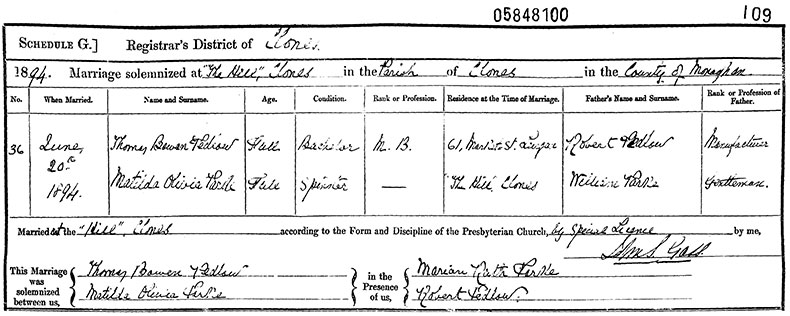 05848100 109
SCHEDULE G.] Registrar's District of Clones.
1894. Marriage solemnized at "The Hill", Clones in the Parish of Clones in the County of Monaghan.
No. When Married. Name and Surname. Age. Condition. Rank or Profession. Residence at the Time of Marriage. Father's Name and Surname. Rank or Profession of Father.
36 June, 20th 1894. Thomas Bowen Pedlow Full Bachelor M. B. 61, Market St. Lurgan Robert Pedlow Manufacturer
Matilda Olivia Parke Full Spinster — The Hill, Clones William Parke Gentleman.
Married at the "Hill", Clones according to the Form and Discipline of the Presbyterian Church, by Special Licence by me,
This Marriage was solemnized between us, Thomas Bowen Pedlow in the Presence of us, Marian Ruth Parke
Matilda Olivia Parke Robert Pedlow.